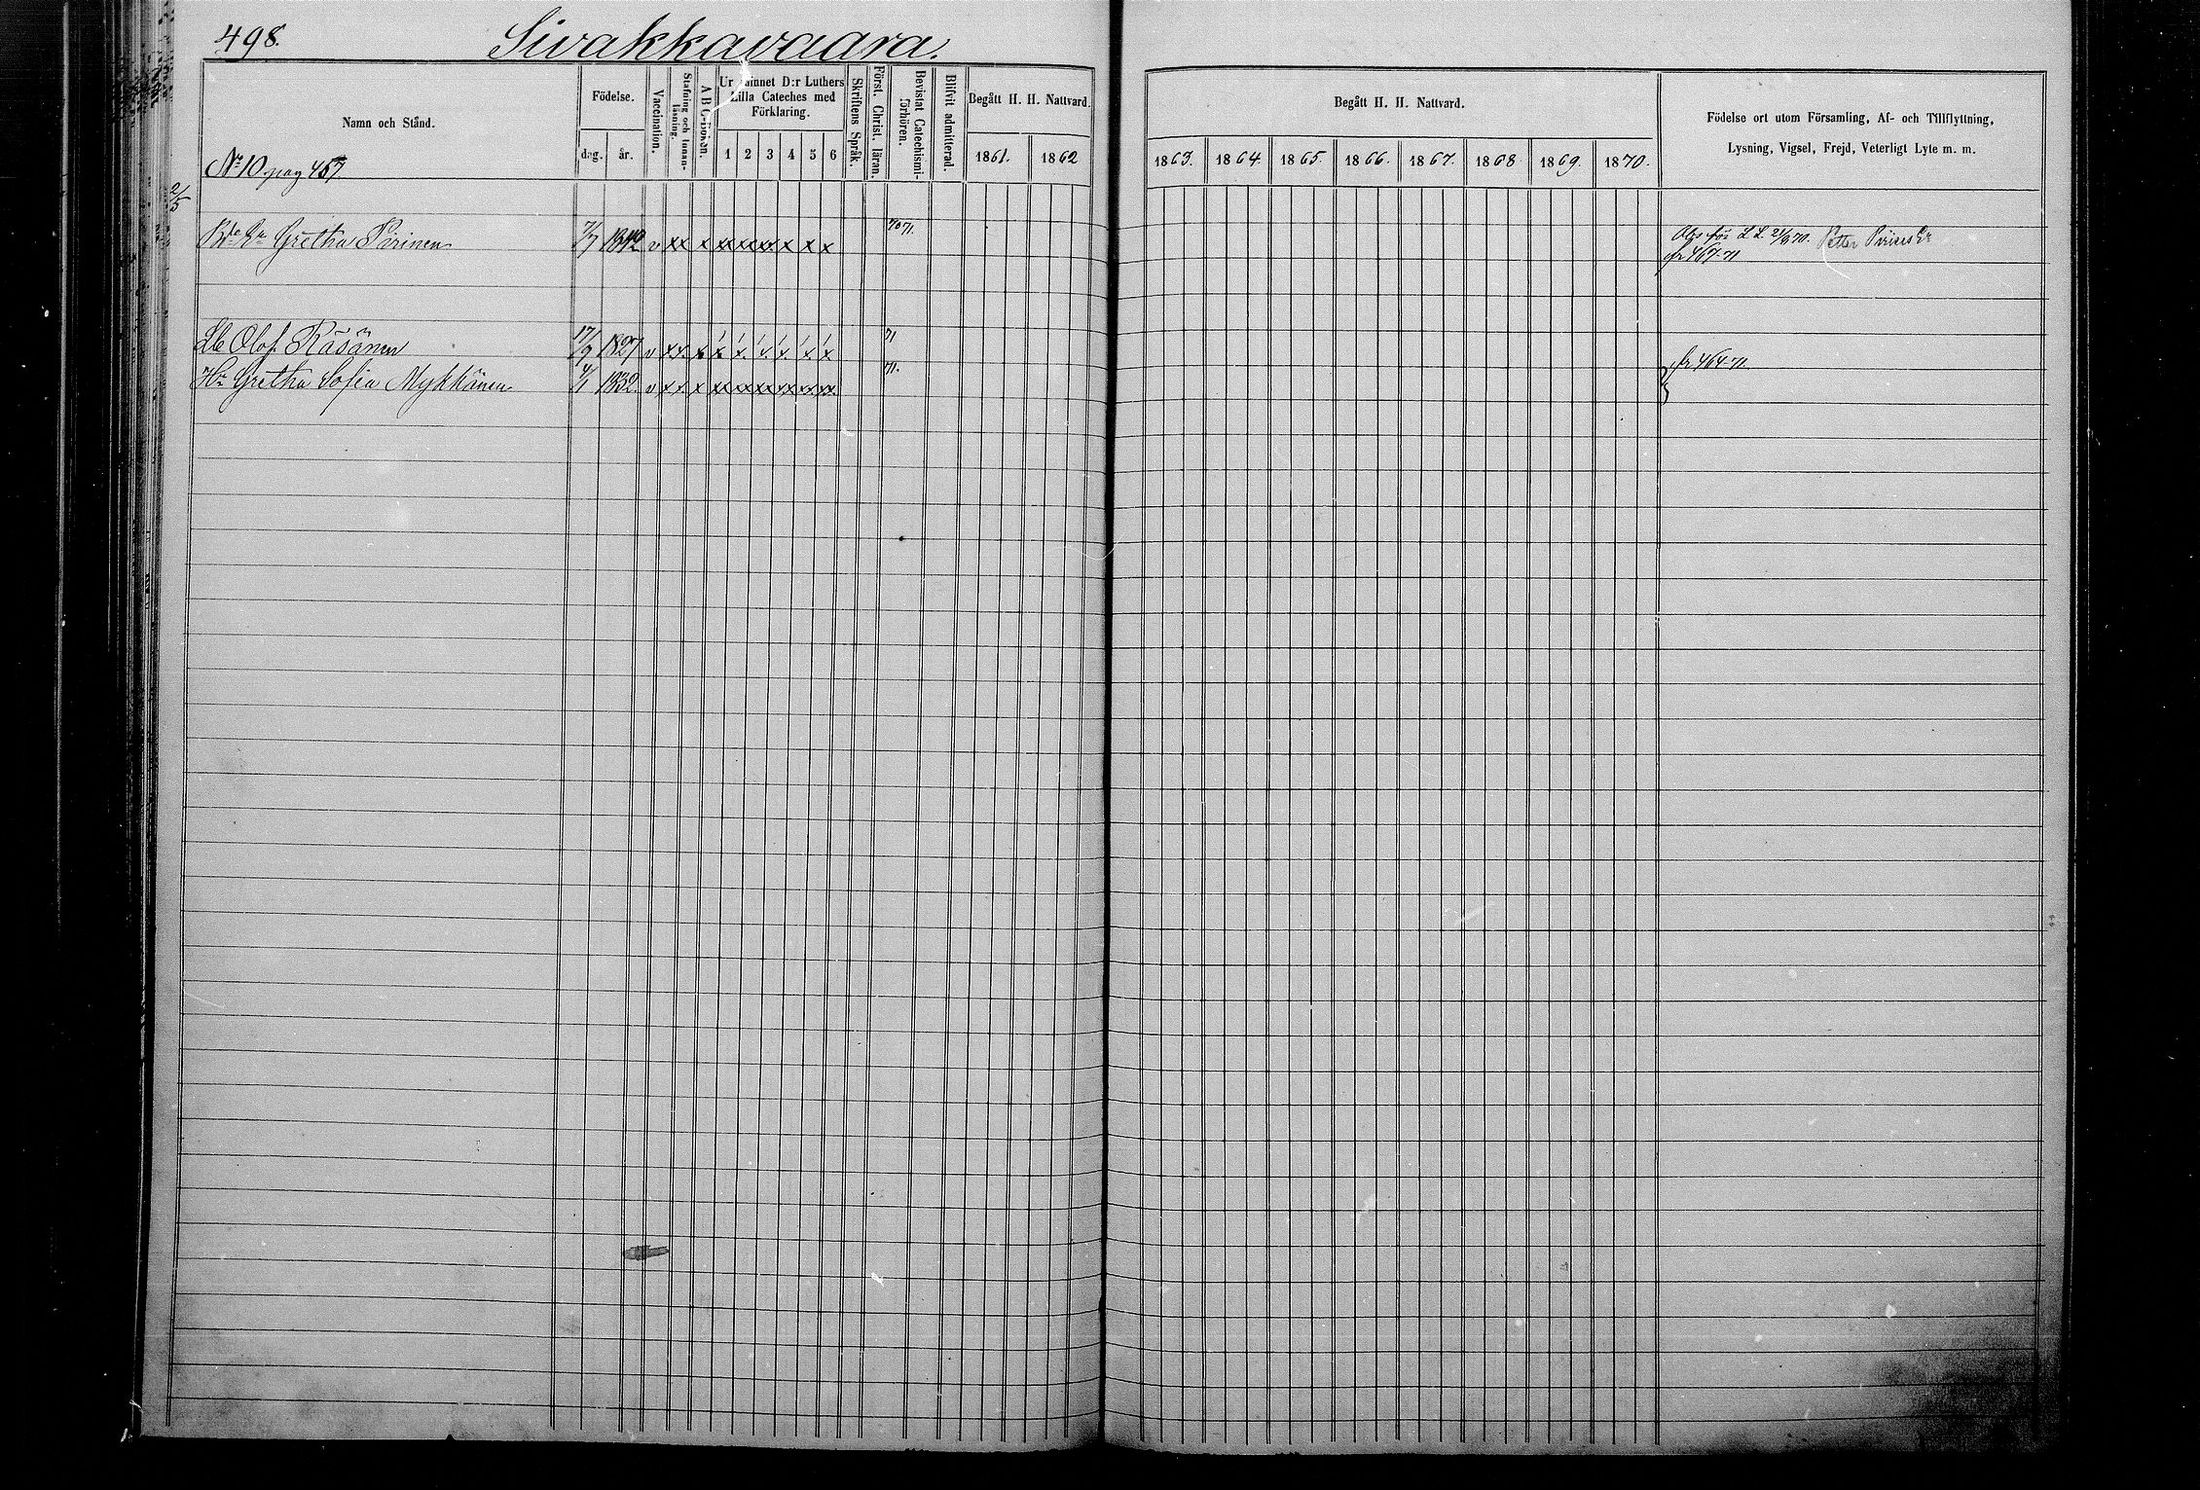 498.
Sivakkavaara.
Namn och Stånd.
Födelse.
dag.
år.
Vaccination.
Stafning och Innanläsning.
A B C-Boken.
Ur Minnet D:r Luthers
Lilla Cateches med
Förklaring.
1 2 3 4 5 6
Skriftens Språk.
Först. Christ. läran.
Bevistat Catechismi-
förhören.
Blifvit admitterad.
Begått H. H. Nattvard.
1861. 1862
Begått H. H. Nattvard.
1863. 1864. 1865. 1866. 1867. 1868 1869. 1870.
Födelse ort utom Församling, Af- och Tillflyttning,
Lysning, Vigsel, Frejd, Veterligt Lyte m. m.
No 10 pag 467.
2/5
Gretha Pirinen 7/7 1842 v xx x xx xx xx x x x 70 71.
21/8 70. Petter
fr 467-71
Olof Räsänen 17/9 1827 v x x. x x x. x. x. x x 71
Hu Gretha Sofia Mykkänen 4/1 1832. v x x. x xx xx xx xx xx xx. 71.
fr 464-71.